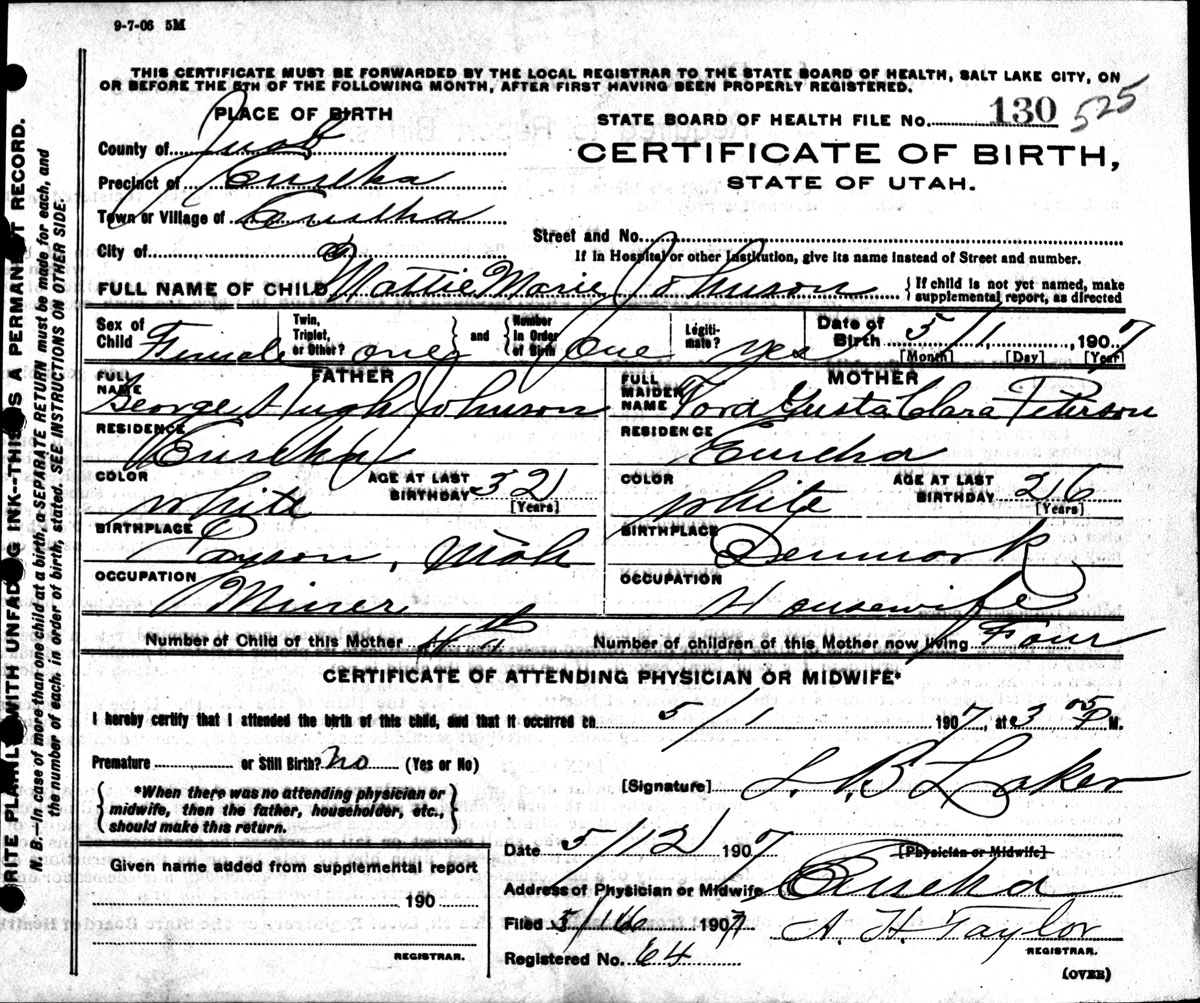 9-7-06 5M
THIS CERTIFICATE MUST BE FORWARDED BY THE LOCAL REGISTRAR TO THE STATE BOARD OF HEALTH, SALT LAKE CITY, ON
OR BEFORE THE 5TH OF THE FOLLOWING MONTH, AFTER FIRST HAVING BEEN PROPERLY REGISTERED.
PLACE OF BIRTH
STATE BOARD OF HEALTH FILE No. 130 525
County of Juab
CERTIFICATE OF BIRTH,
Precinct of Eureka
STATE OF UTAH.
Town or Village of Eureka
Street and No.
City of
If in Hospital or other Institution, give its name instead of Street and number.
FULL NAME OF CHILD Mattie Marie Johnson { If child is not yet named, make
supplemental report, as directed
Sex of Child Female Twin, Triplet, or Other? one and Number in Order of Birth One Legiti-mate? yes Date of Birth 5/1, 1907
[Month] [Day] [Year]
FATHER
MOTHER
FULL NAME George Hugh Johnson
FULL MAIDEN NAME Tora Gusta Clara Peterson
RESIDENCE Eureka
RESIDENCE Eureka
COLOR White AGE AT LAST BIRTHDAY 32 [Years]
COLOR White AGE AT LAST BIRTHDAY 26 [Years]
BIRTHPLACE Payson, Utah
BIRTHPLACE Denmark
OCCUPATION Miner
OCCUPATION Housewife
Number of Child of this Mother 4th Number of children of this Mother now living Four
CERTIFICATE OF ATTENDING PHYSICIAN OR MIDWIFE*
I hereby certify that I attended the birth of this child, and that it occurred on 5/1 1907, at 3 05 P M.
Premature or Still Birth? No (Yes or No)
[Signature] Laker
*When there was no attending physician or
midwife, then the father, householder, etc.,
should make this return.
[Physician or Midwife]
Date 5/12 1907
Given name added from supplemental report
190
REGISTRAR.
Address of Physician or Midwife Eureka
Filed 5/16 1907 A. H. Taylor
REGISTRAR.
Registered No. 64
(OVER)
WRITE PLAINLY WITH UNFADING INK--THIS IS A PERMANENT RECORD.
N. B.—In case of more than one child at a birth, a SEPARATE RETURN must be made for each, and
the number of each, in order of birth, stated. SEE INSTRUCTIONS ON OTHER SIDE.